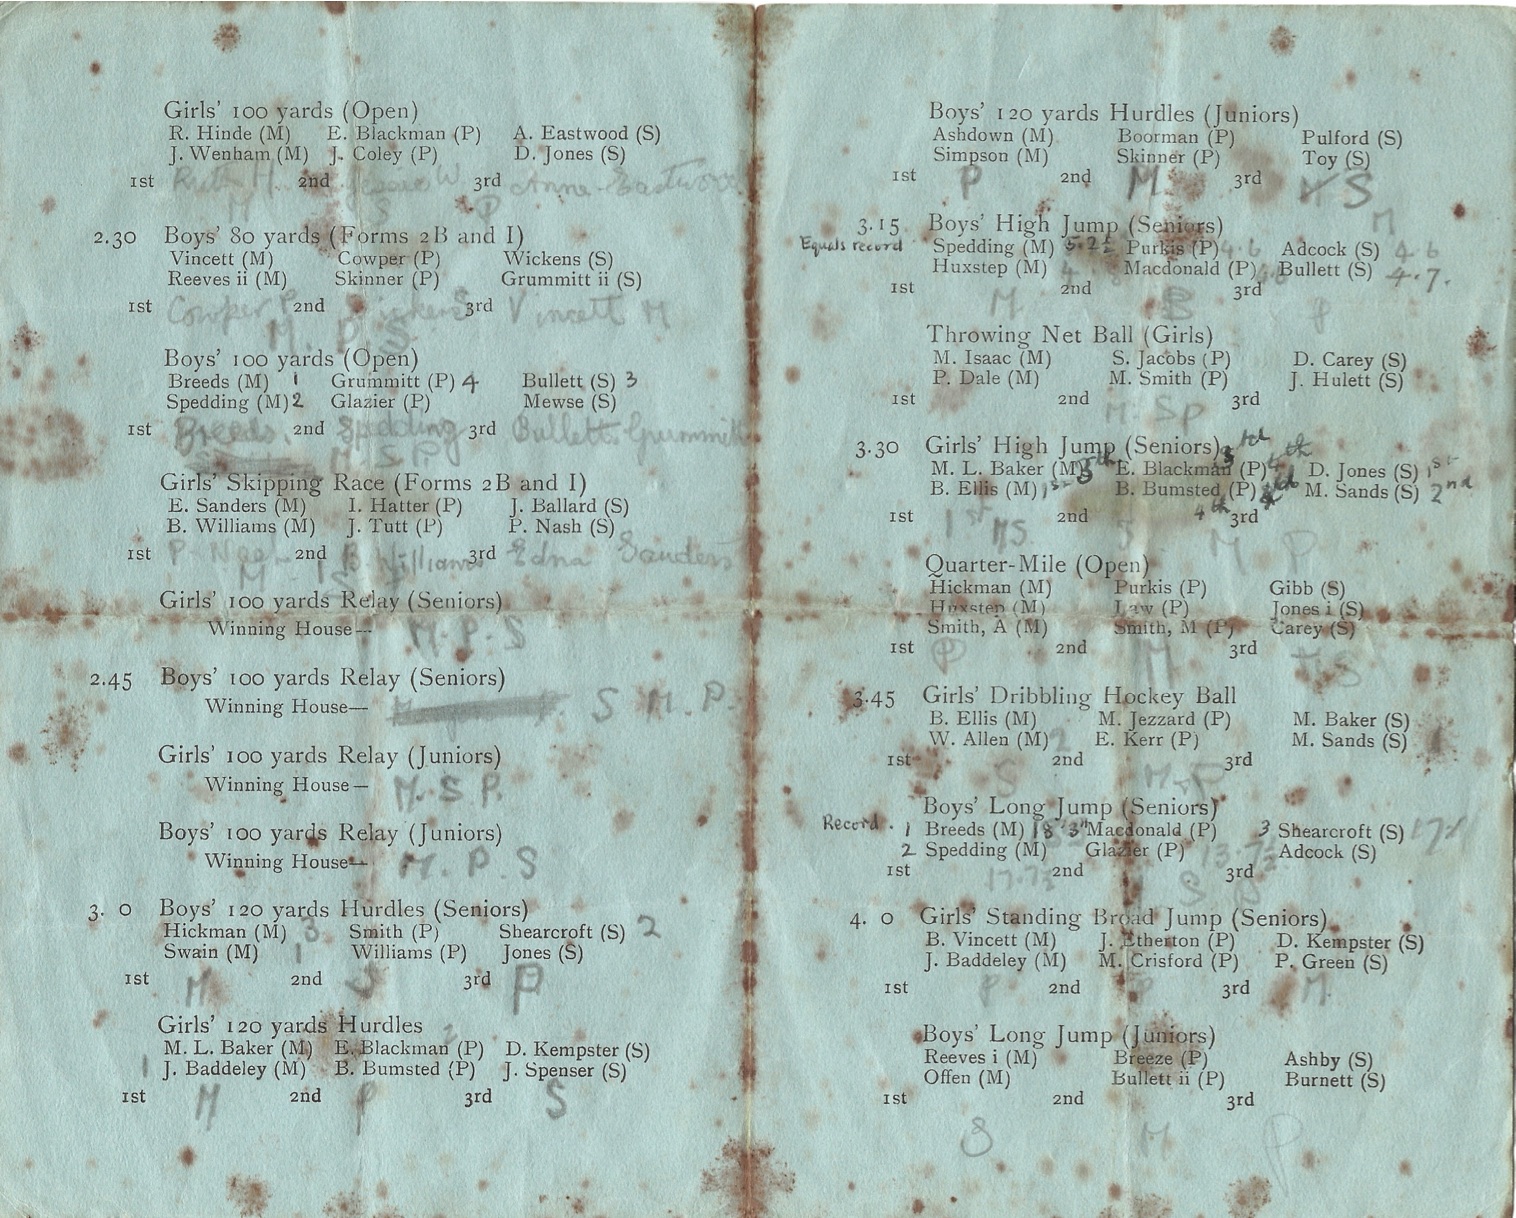 Girls' 100 yards (Open)
R. Hinde (M) E. Blackman (P) A. Eastwood (S)
J. Wenham (M) J. Coley (P) D. Jones (S)
1st Ruth H. 2nd Jessie W. 3rd Anne Eastwood
M S P
2.30 Boys' 80 yards (Forms 2B and I)
Vincett (M) Cowper (P) Wickens (S)
Reeves ii (M) Skinner (P) Grummitt ii (S)
1st Cowper P 2nd Wickens S 3rd Vincett M
M. P. S
Boys' 100 yards (Open)
Breeds (M) 1 Grummitt (P) 4 Bullett (S) 3
Spedding (M) 2 Glazier (P) Mewse (S)
1st Breeds. 2nd Spedding 3rd Bullett Grummitt
M. S. P.
Girls' Skipping Race (Forms 2B and I)
E. Sanders (M) I. Hatter (P) J. Ballard (S)
B. Williams (M) J. Tutt (P) P. Nash (S)
1st P. Nash 2nd B. Williams 3rd Edna Sanders
M S
Girls' 100 yards Relay (Seniors)
Winning House— M. P. S
2.45 Boys' 100 yards Relay (Seniors)
Winning House— S M. P.
Girls' 100 yards Relay (Juniors)
Winning House— M. S P.
Boys' 100 yards Relay (Juniors)
Winning House— M. P. S
3. 0 Boys' 120 yards Hurdles (Seniors)
Hickman (M) 3 Smith (P) Shearcroft (S) 2
Swain (M) 1 Williams (P) Jones (S)
1st M 2nd S 3rd P
Girls' 120 yards Hurdles
M. L. Baker (M) E. Blackman (P) 2 D. Kempster (S)
1 J. Baddeley (M) B. Bumsted (P) J. Spenser (S)
1st M 2nd P 3rd S
Boys' 120 yards Hurdles (Juniors)
Ashdown (M) Boorman (P) Pulford (S)
Simpson (M) Skinner (P) Toy (S)
1st P 2nd M 3rd S
3.15 Boys' High Jump (Seniors) M
Equals record Spedding (M) 5.2½ Purkis (P) 4.6 Adcock (S) 4.6
Huxstep (M) Macdonald (P) Bullett (S) 4.7.
1st 2nd 3rd
M P
Throwing Net Ball (Girls)
M. Isaac (M) S. Jacobs (P) D. Carey (S)
P. Dale (M) M. Smith (P) J. Hulett (S)
1st 2nd 3rd
M. S P
3.30 Girls' High Jump (Seniors)
M. L. Baker (M) 5th E. Blackman (P) 4th D. Jones (S) 1st
B. Ellis (M) 1st B. Bumsted (P) M. Sands (S) 2nd
1st 2nd 4th 3rd
1st MS M P
Quarter-Mile (Open)
Hickman (M) Purkis (P) Gibb (S)
Huxstep (M) Law (P) Jones i (S)
Smith, A (M) Smith, M (P) Carey (S)
1st P 2nd M 3rd S
3.45 Girls' Dribbling Hockey Ball
B. Ellis (M) M. Jezzard (P) M. Baker (S)
W. Allen (M) 2 E. Kerr (P) M. Sands (S) 1
1st 2nd 3rd
S M P
Boys' Long Jump (Seniors)
Record. 1 Breeds (M) 18' 3" Macdonald (P) 3 Shearcroft (S)
2 Spedding (M) Glazier (P) 13.7½ Adcock (S)
1st 17.7½ 2nd 3rd
S P
4. 0 Girls' Standing Broad Jump (Seniors)
B. Vincett (M) J. Etherton (P) D. Kempster (S)
J. Baddeley (M) M. Crisford (P) P. Green (S)
1st P 2nd 3rd M
Boys' Long Jump (Juniors)
Reeves i (M) Breeze (P) Ashby (S)
Offen (M) Bullett ii (P) Burnett (S)
1st 2nd 3rd
S M P